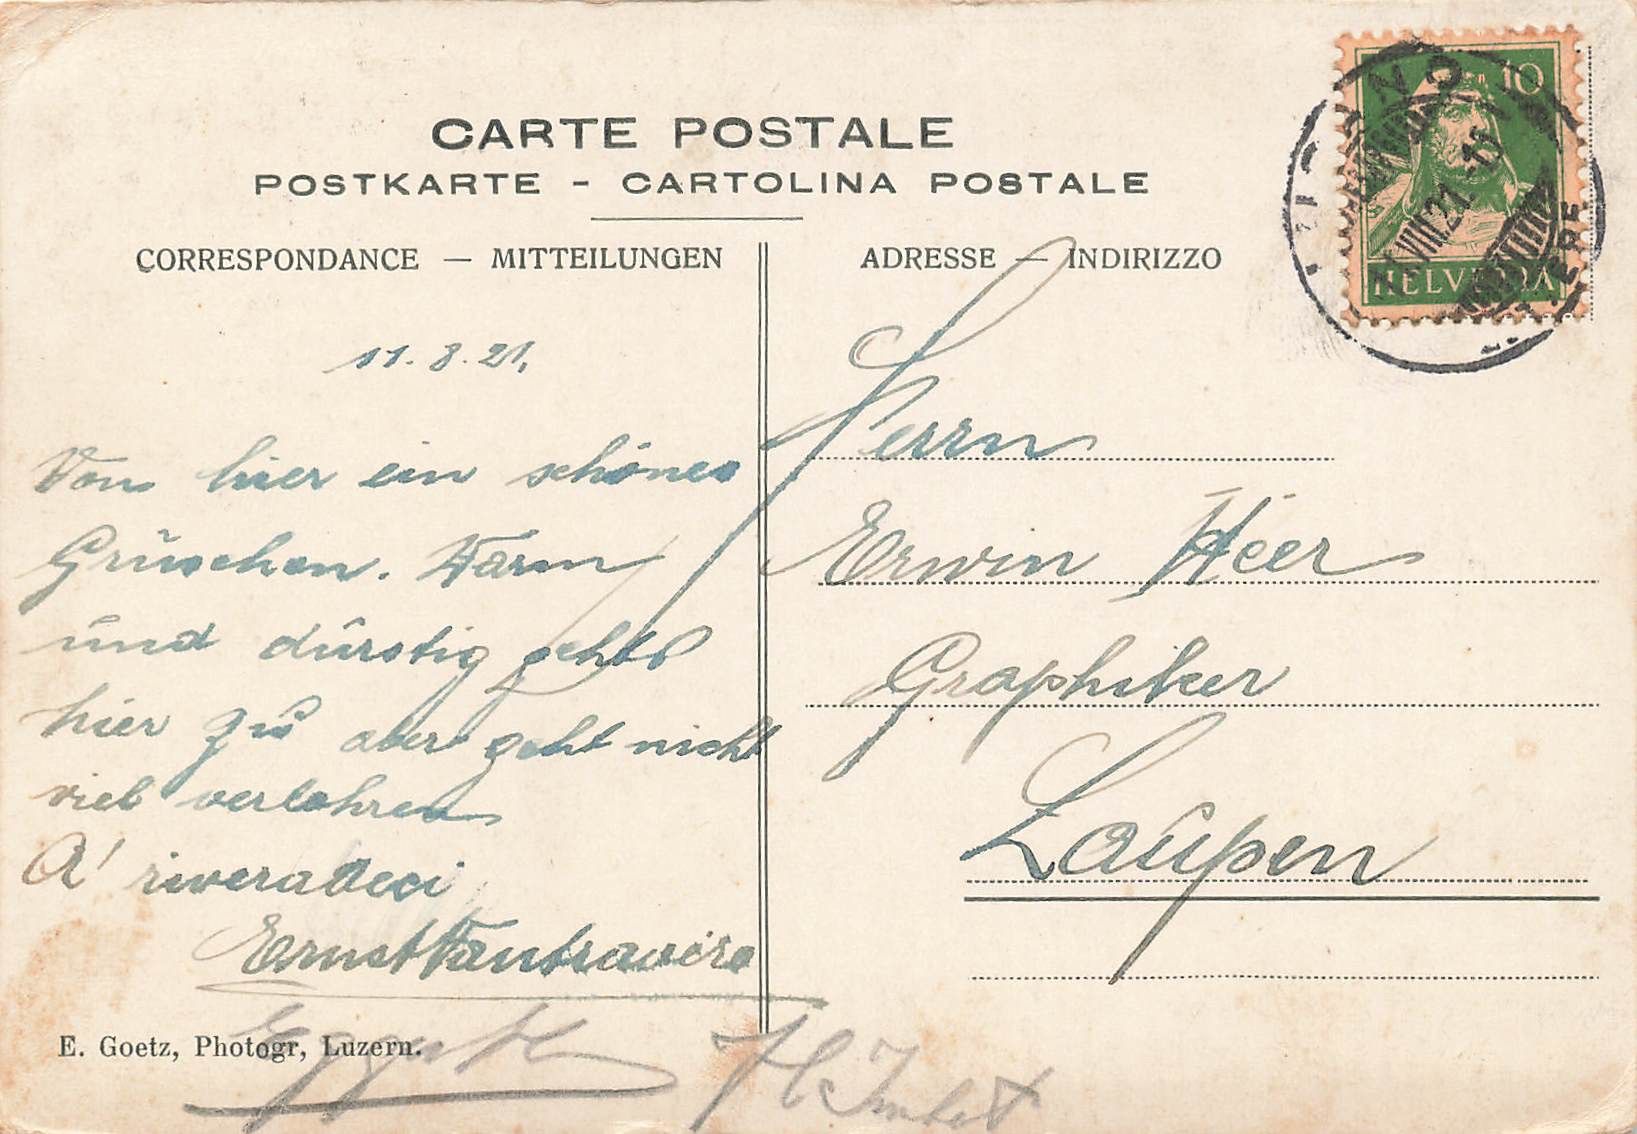 CARTE POSTALE
POSTKARTE - CARTOLINA POSTALE
CORRESPONDANCE — MITTEILUNGEN
ADRESSE — INDIRIZZO
10
HELVETIA
VIII 21
11. 8. 21.
Von hier ein schönes
Grüschen. Warm
und dürstig gehts
hier zu aber geht nicht
viel verlohren
A' riveradeci
Ernst
Herrn
Erwin Heer
Graphiker
Laupen
E. Goetz, Photogr, Luzern.